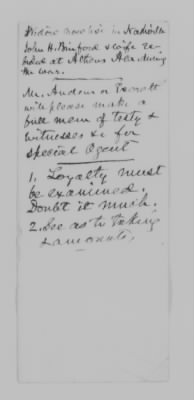 Widow now lives in Nashville
John H. Binford & wife re-
sided at Athens Ala. during
the war.
Mr. Andrew or
will please make a
full mem of testy &
witnesses &c for
special agent
1. Loyalty must
be examined.
Doubt it much.
2. See as to taking
& amounts,